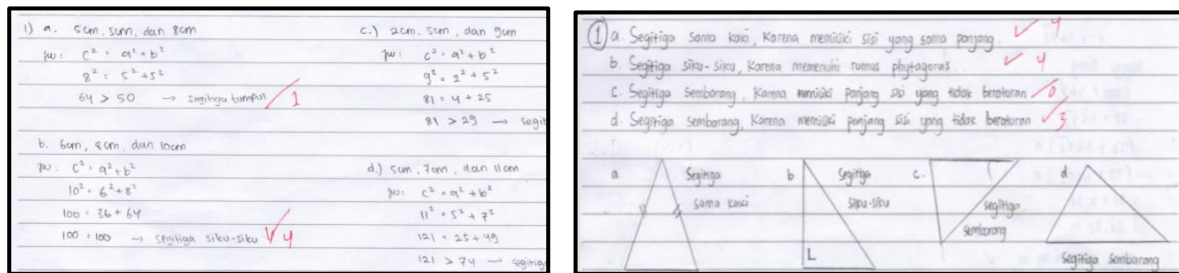 1) a. 5cm, 5cm, dan 8cm
jw: c² = a² + b²
8² = 5² + 5²
64 > 50 → segitiga tumpul 1
b. 6cm, 8cm, dan 10cm
jw: c² = a² + b²
10² = 6² + 8²
100 = 36 + 64
100 = 100 → segitiga siku-siku 4
c.) 2cm, 5cm, dan 9cm
jw: c² = a² + b²
9² = 2² + 5²
81 = 4 + 25
81 > 29 → segit
d.) 5cm, 7cm, dan 11cm
jw: c² = a² + b²
11² = 5² + 7²
121 = 25 + 49
121 > 74 → segitig
1 a. Segitiga sama kaki, Karena memiliki sisi yang sama panjang. 4
b. Segitiga siku-siku, Karena memenuhi rumus phytagoras 4
c. Segitiga Sembarang, Karena memiliki panjang sisi yang tidak beraturan 0
d. Segitiga sembarang, Karena memiliki panjang sisi yang tidak beraturan 3
a Segitiga sama kaki
b Segitiga siku-siku
c. segitiga sembarang
d Segitiga Sembarang